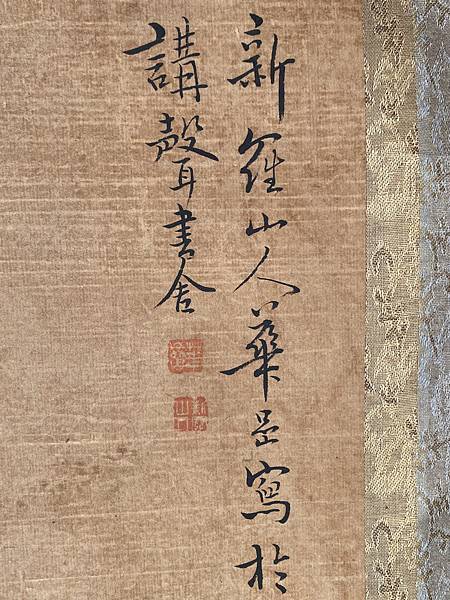 新羅山人華嵒寫於
講聲書舍